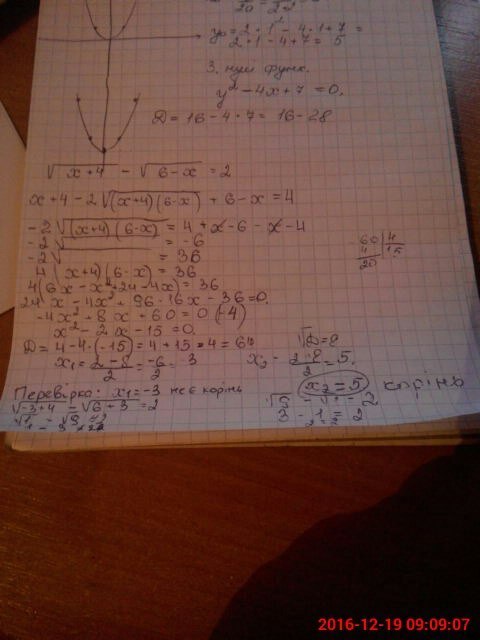 y₀ = 2·1² - 4·1 + 7 =
2·1 - 4 + 7 = 5
3. нулі функ.
y² - 4x + 7 = 0,
D = 16 - 4·7 = 16 - 28
√x+4 - √6-x = 2
x+4 - 2√(x+4)(6-x) + 6 - x = 4
-2√(x+4)(6-x) = 4 + x - 6 - x - 4
-2√ = -6
-2√ = 36
4(x+4)(6-x) = 36
4(6x - x² + 24 - 4x) = 36
24x - 4x² + 96 - 16x - 36 = 0.
-4x² + 8x + 60 = 0 (-4)
x² - 2x - 15 = 0.
D = 4 - 4·(-15) = 4 + 15·4 = 64
√D = 8
x₁ = 2-8/2 = -6/2 = -3
x₂ = 2+8/2 = 5.
60 4
4 15
20
Перевірка: x₁ = -3 не є корінь
√-3+4 - √6+3 = 2
x₂ = 5 корінь
3 - 1 = 2
2016-12-19 09:09:07